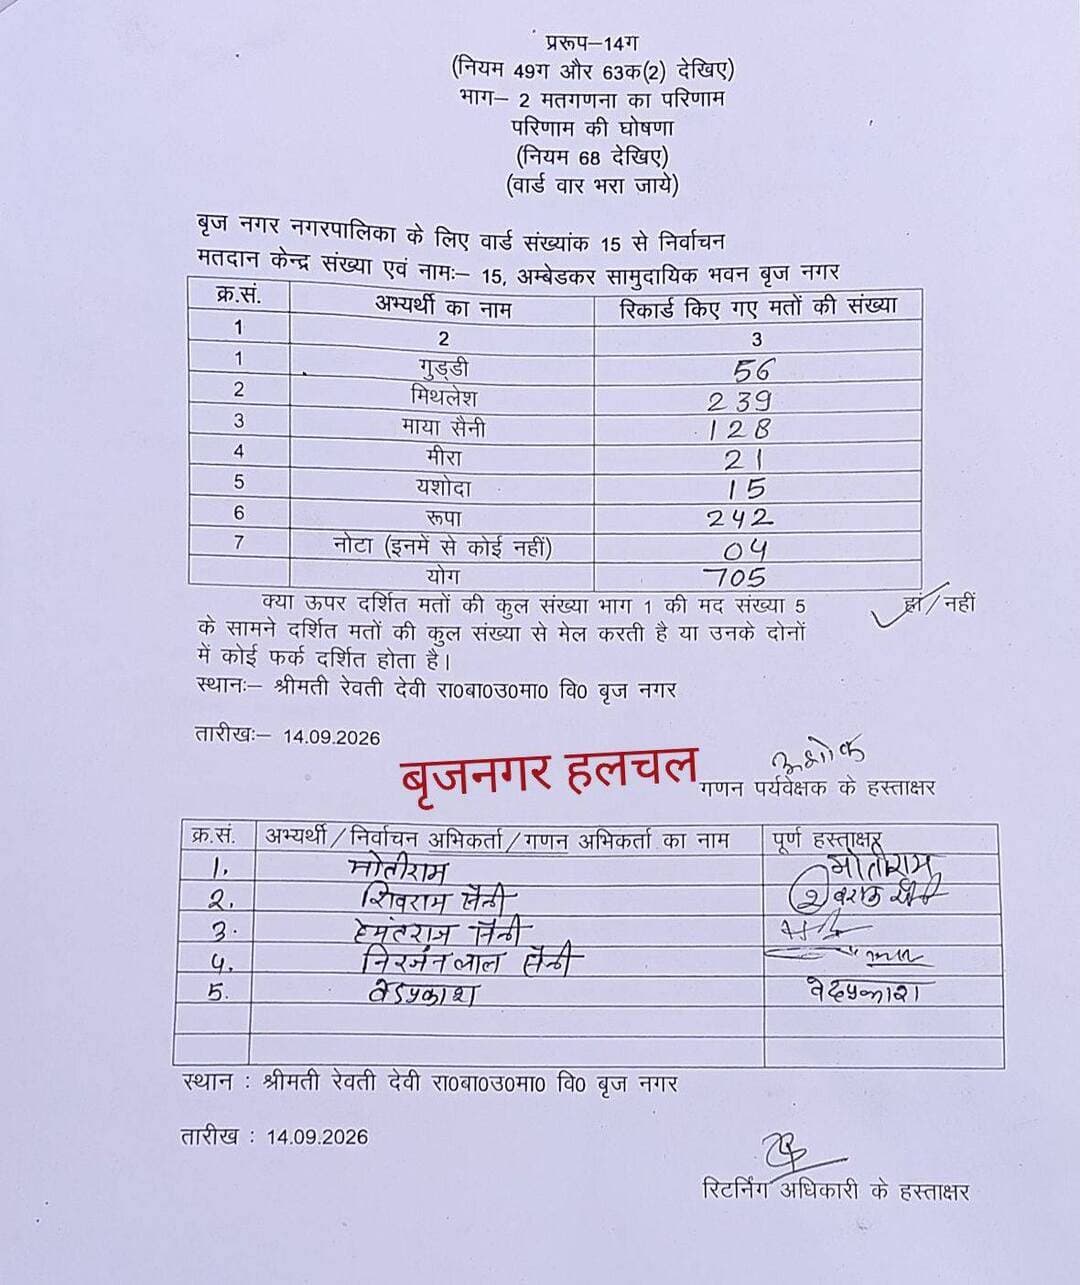 प्ररूप–14ग
(नियम 49ग और 63क(2) देखिए)
भाग– 2 मतगणना का परिणाम
परिणाम की घोषणा
(नियम 68 देखिए)
(वार्ड वार भरा जाये)
बृज नगर नगरपालिका के लिए वार्ड संख्यांक 15 से निर्वाचन
मतदान केन्द्र संख्या एवं नामः– 15, अम्बेडकर सामुदायिक भवन बृज नगर
क्र.सं. अभ्यर्थी का नाम रिकार्ड किए गए मतों की संख्या
1 2 3
1 गुड्डी 56
2 मिथलेश 239
3 माया सैनी 128
4 मीरा 21
5 यशोदा 15
6 रूपा 242
7 नोटा (इनमें से कोई नहीं) 04
योग 705
क्या ऊपर दर्शित मतों की कुल संख्या भाग 1 की मद संख्या 5 हां/नहीं
के सामने दर्शित मतों की कुल संख्या से मेल करती है या उनके दोनों
में कोई फर्क दर्शित होता है।
स्थानः– श्रीमती रेवती देवी रा0बा0उ0मा0 वि0 बृज नगर
तारीखः– 14.09.2026
अशोक
बृजनगर हलचल
गणन पर्यवेक्षक के हस्ताक्षर
क्र.सं. अभ्यर्थी/निर्वाचन अभिकर्ता/गणन अभिकर्ता का नाम पूर्ण हस्ताक्षर
1. मोतीराम मोतीराम
2. शिवराम सैनी
3. हेमंतराज सैनी
4. निरंजन लाल सैनी
5. वेदप्रकाश वेदप्रकाश
स्थान : श्रीमती रेवती देवी रा0बा0उ0मा0 वि0 बृज नगर
तारीख : 14.09.2026
रिटर्निंग अधिकारी के हस्ताक्षर